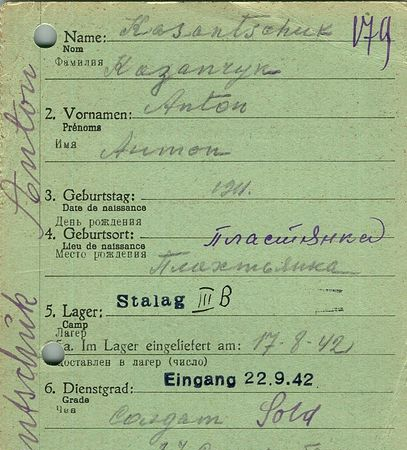 Name: Kasantschuk 179
Nom
Фамилия Казанчук
2. Vornamen: Anton
Prénoms
Имя Антон
3. Geburtstag:
Date de naissance
День рождения
4. Geburtsort: Пластянка
Lieu de naissance
Место рождения Плахтьянка
5. Lager: Stalag III B
Camp
Лагерь
5a. Im Lager eingeliefert am: 17-8-42
Доставлен в лагерь (число)
6. Dienstgrad: Eingang 22.9.42.
Grade
Чин солдат Sold
Anton